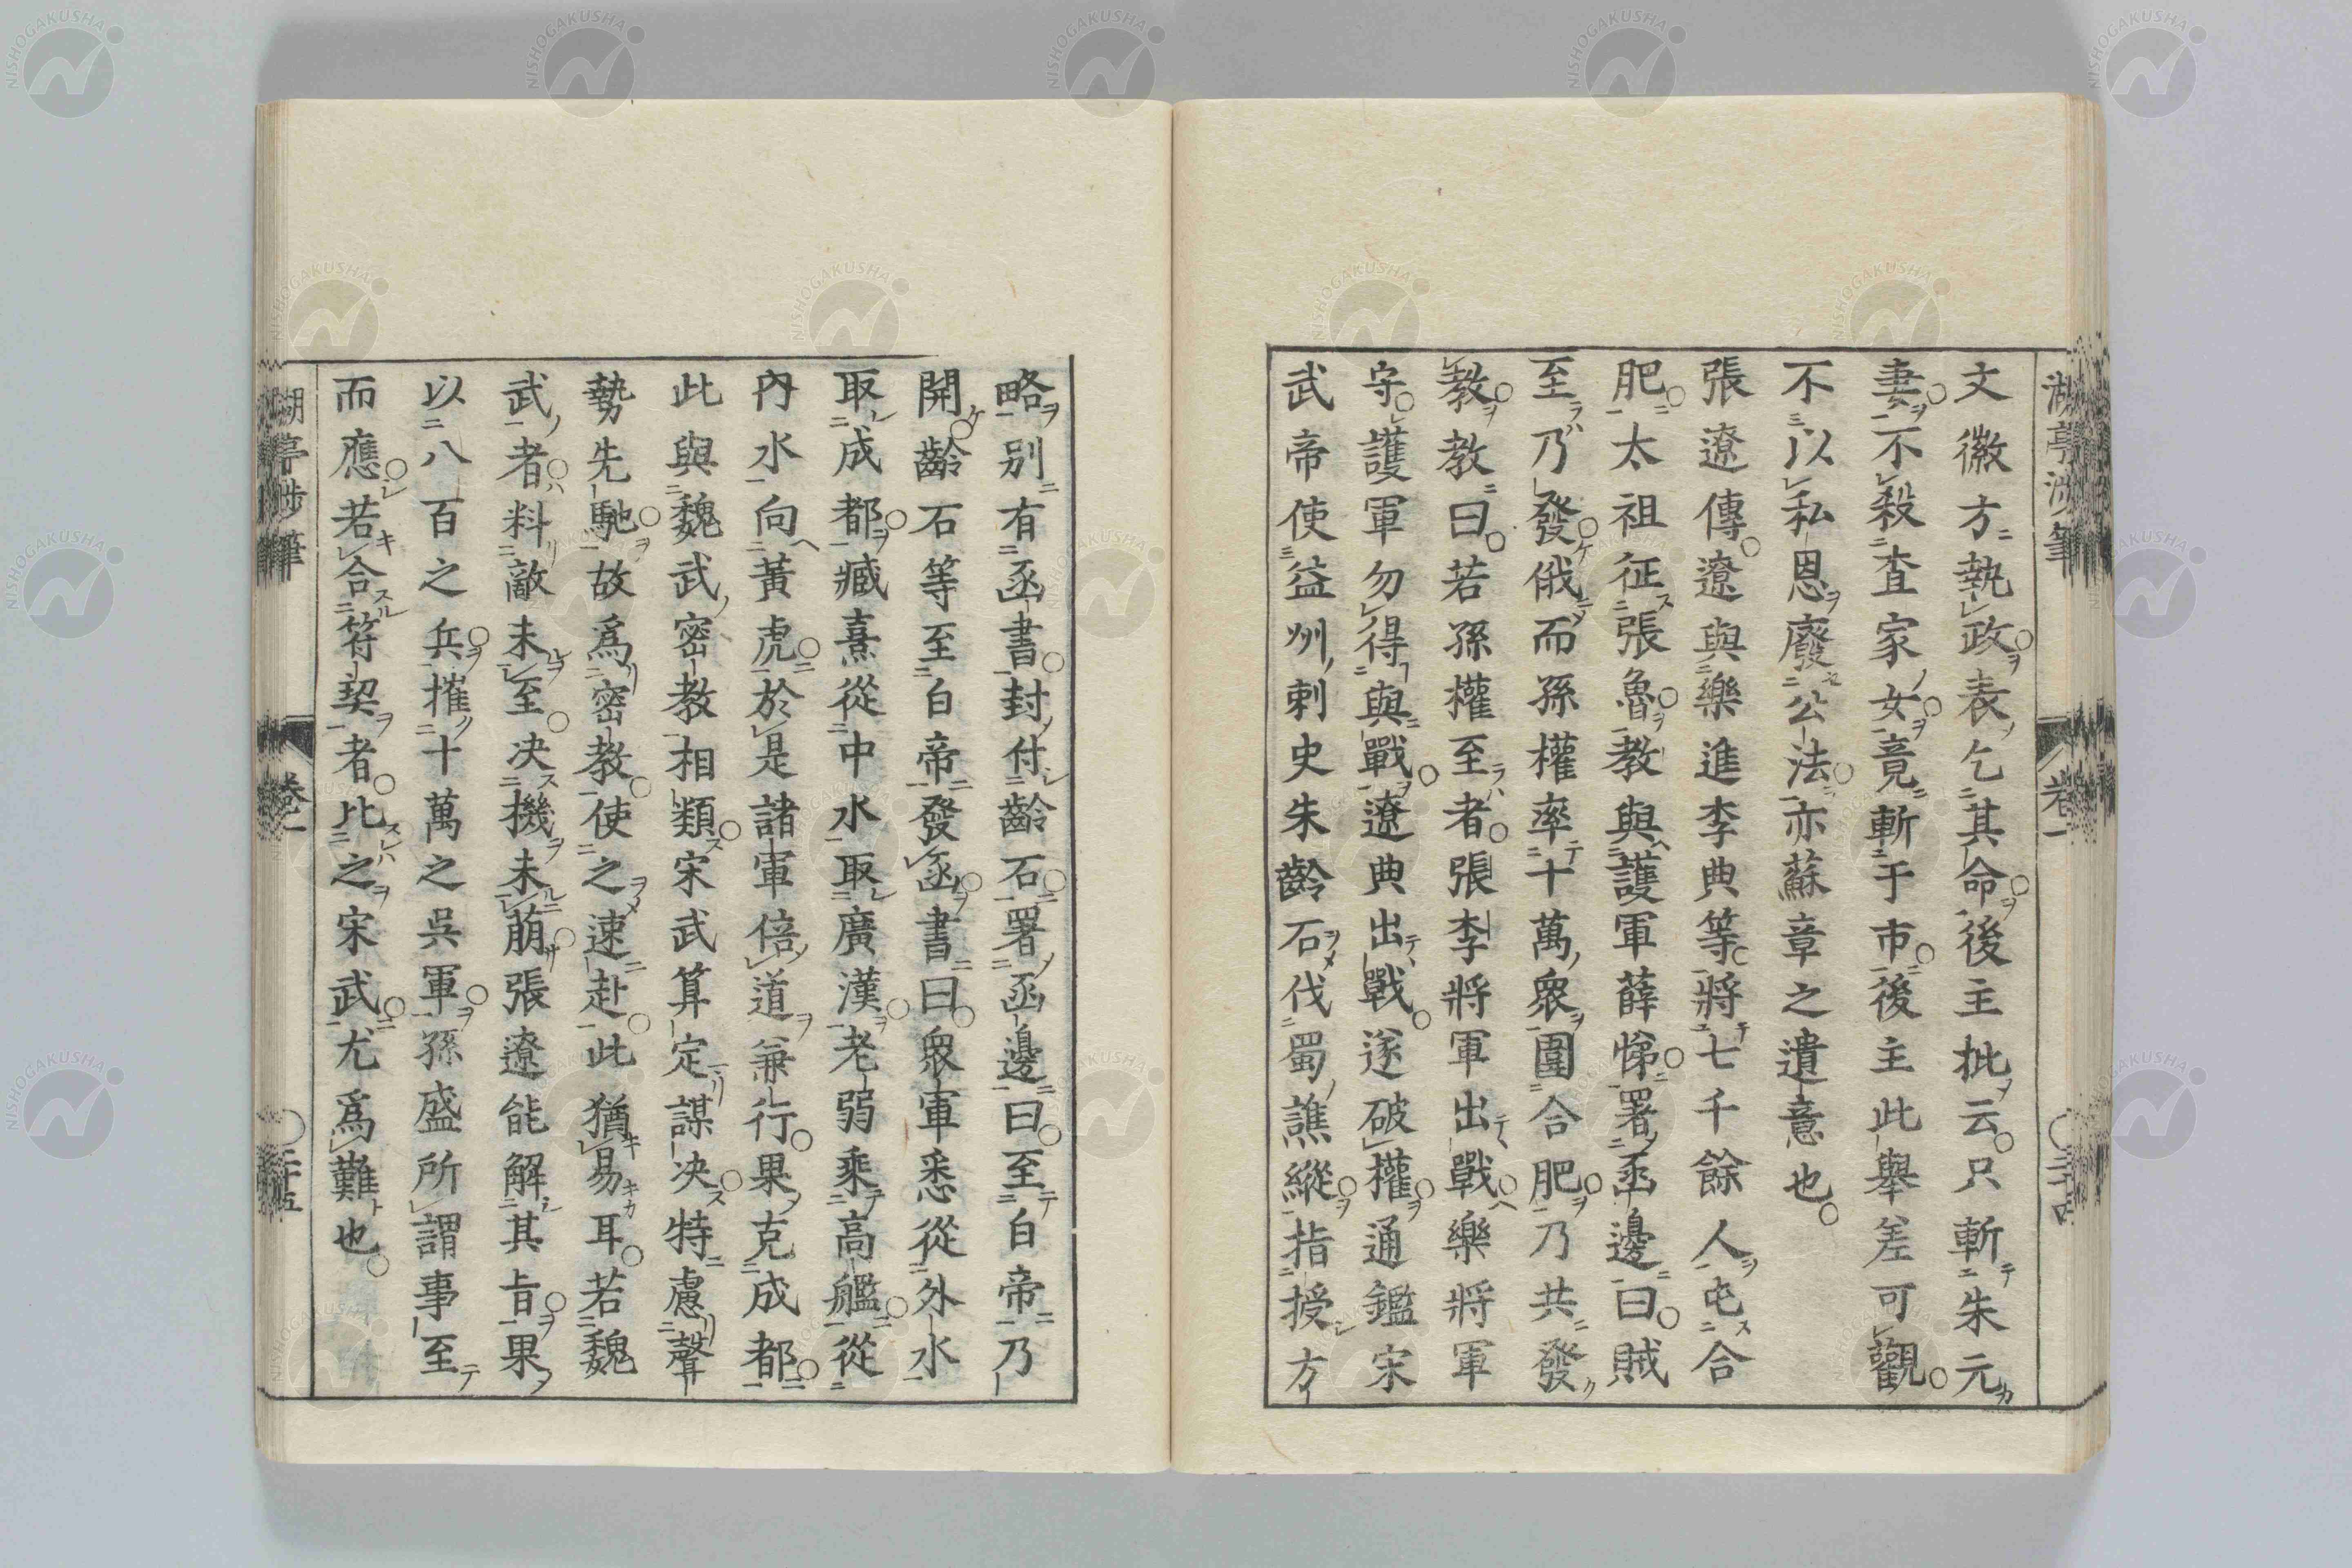 文徽方執政表乞其命後主批云只斬朱元
妻不殺査家女竟斬于市後主此舉差可觀
不以私恩廢公法亦蘇章之遺意也
張遼傳遼與樂進李典等將七千餘人屯合
肥太祖征張魯教與護軍薛悌署函邊曰賊
至乃發俄而孫權率十萬衆圍合肥乃共發
教教曰若孫權至者張李將軍出戰樂將軍
守護軍勿得與戰遼典出戰遂破權通鑑宋
武帝使益州刺史朱齡石伐蜀譙縱指授方
略別有函書封付齡石署函邊曰至白帝乃
開齡石等至白帝發函書曰衆軍悉從外水
取成都臧熹從中水取廣漢老弱乘高艦從
內水向黃虎於是諸軍倍道兼行果克成都
此與魏武密教相類宋武算定謀决特慮聲
勢先馳故爲密教使之速赴此猶易耳若魏
武者料敵未至决機未萠張遼能解其旨果
以八百之兵摧十萬之吳軍孫盛所謂事至
而應若合符契者比之宋武尤爲難也
湖亭涉筆
卷一
二十五
NISHOGAKUSHA